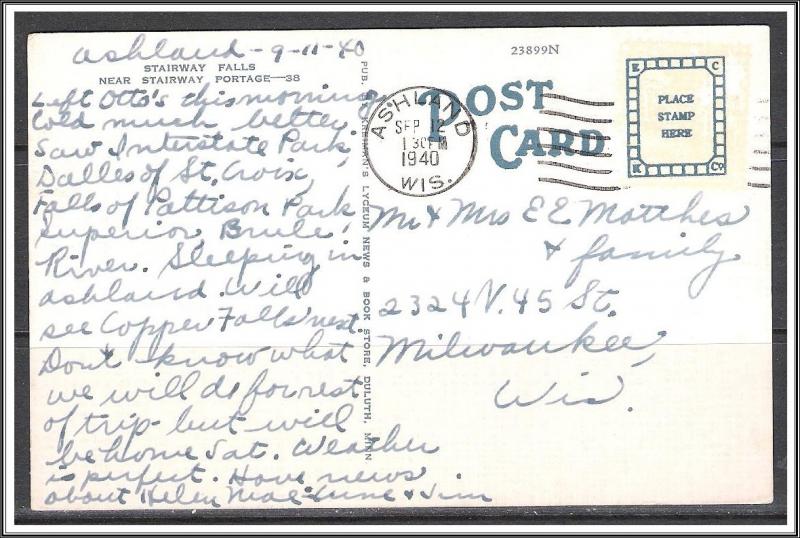 Ashland - 9-11-40
STAIRWAY FALLS
NEAR STAIRWAY PORTAGE—38
Left Otto's this morning
Cold much better.
Saw Interstate Park,
Dalles of St. Croix,
Falls of Pattison Park
Superior, Brule
River. Sleeping in
Ashland. Will
see Copper Falls next.
Dont know what
we will do for rest
of trip - but will
be home Sat. Weather
is perfect. Have news
about Helen Mae - June & Jim
LYCEUM NEWS & BOOK STORE, DULUTH, MINN.
23899N
POST
CARD
ASHLAND
SEP 12
1 30 PM
1940
WIS.
E C
PLACE
STAMP
HERE
K Co
Mr & Mrs E E Matthes
& family
2324 N. 45 St.
Milwaukee,
Wis.